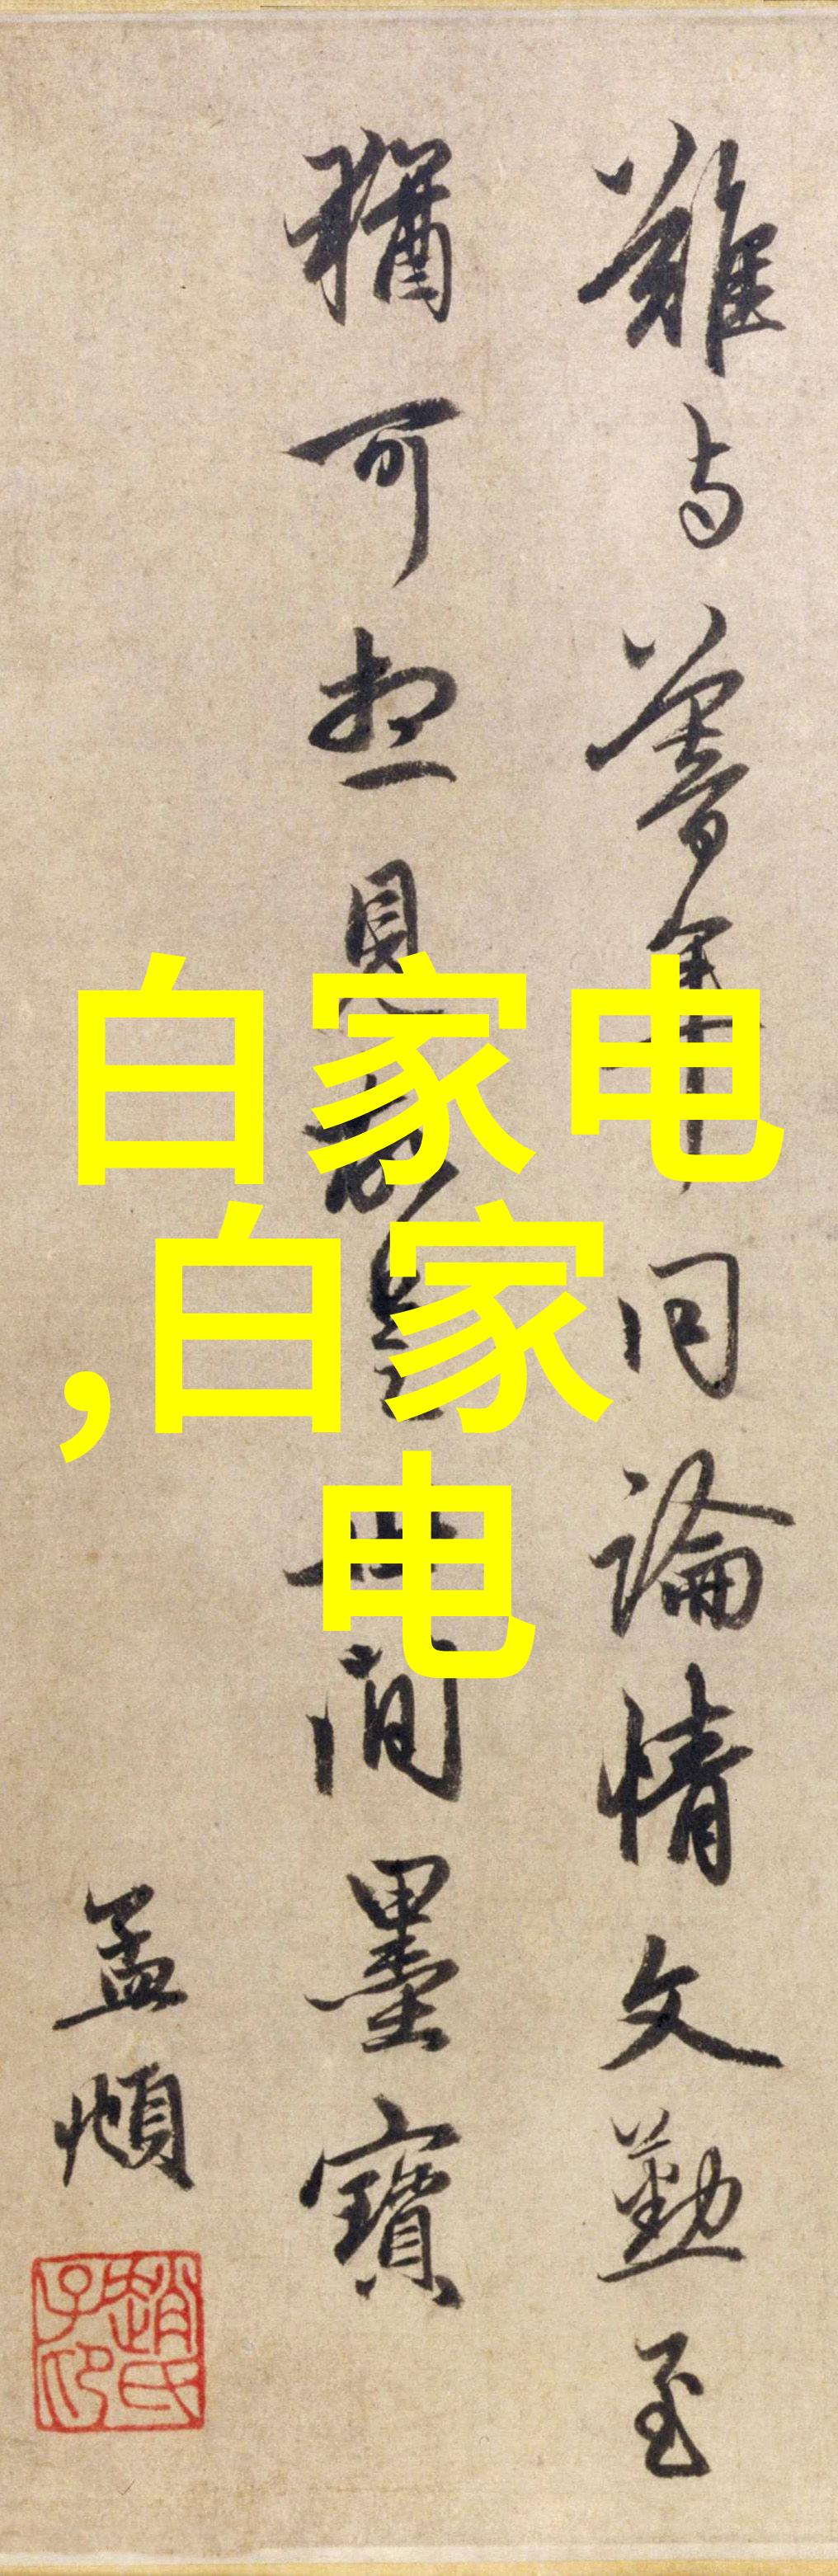 難与同論情文勤至
猶可想見故是世間墨寶
孟頫
趙氏子昂
白家电
,白家
电